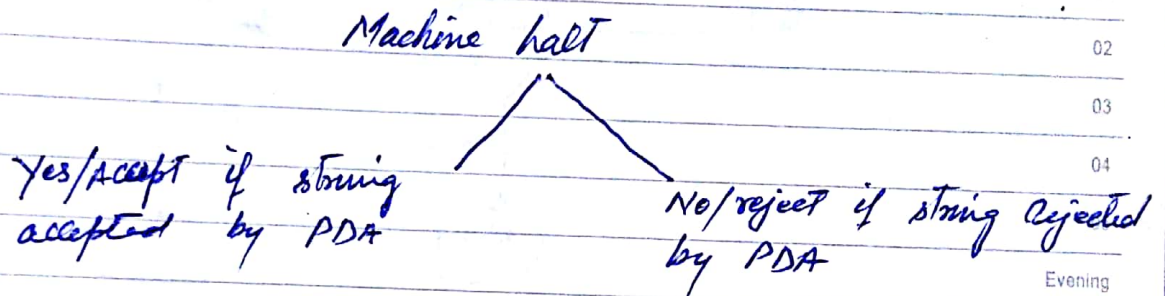 Machine halt
02
03
04
Yes/Accept if string
accepted by PDA
No/reject if string rejected
by PDA
Evening